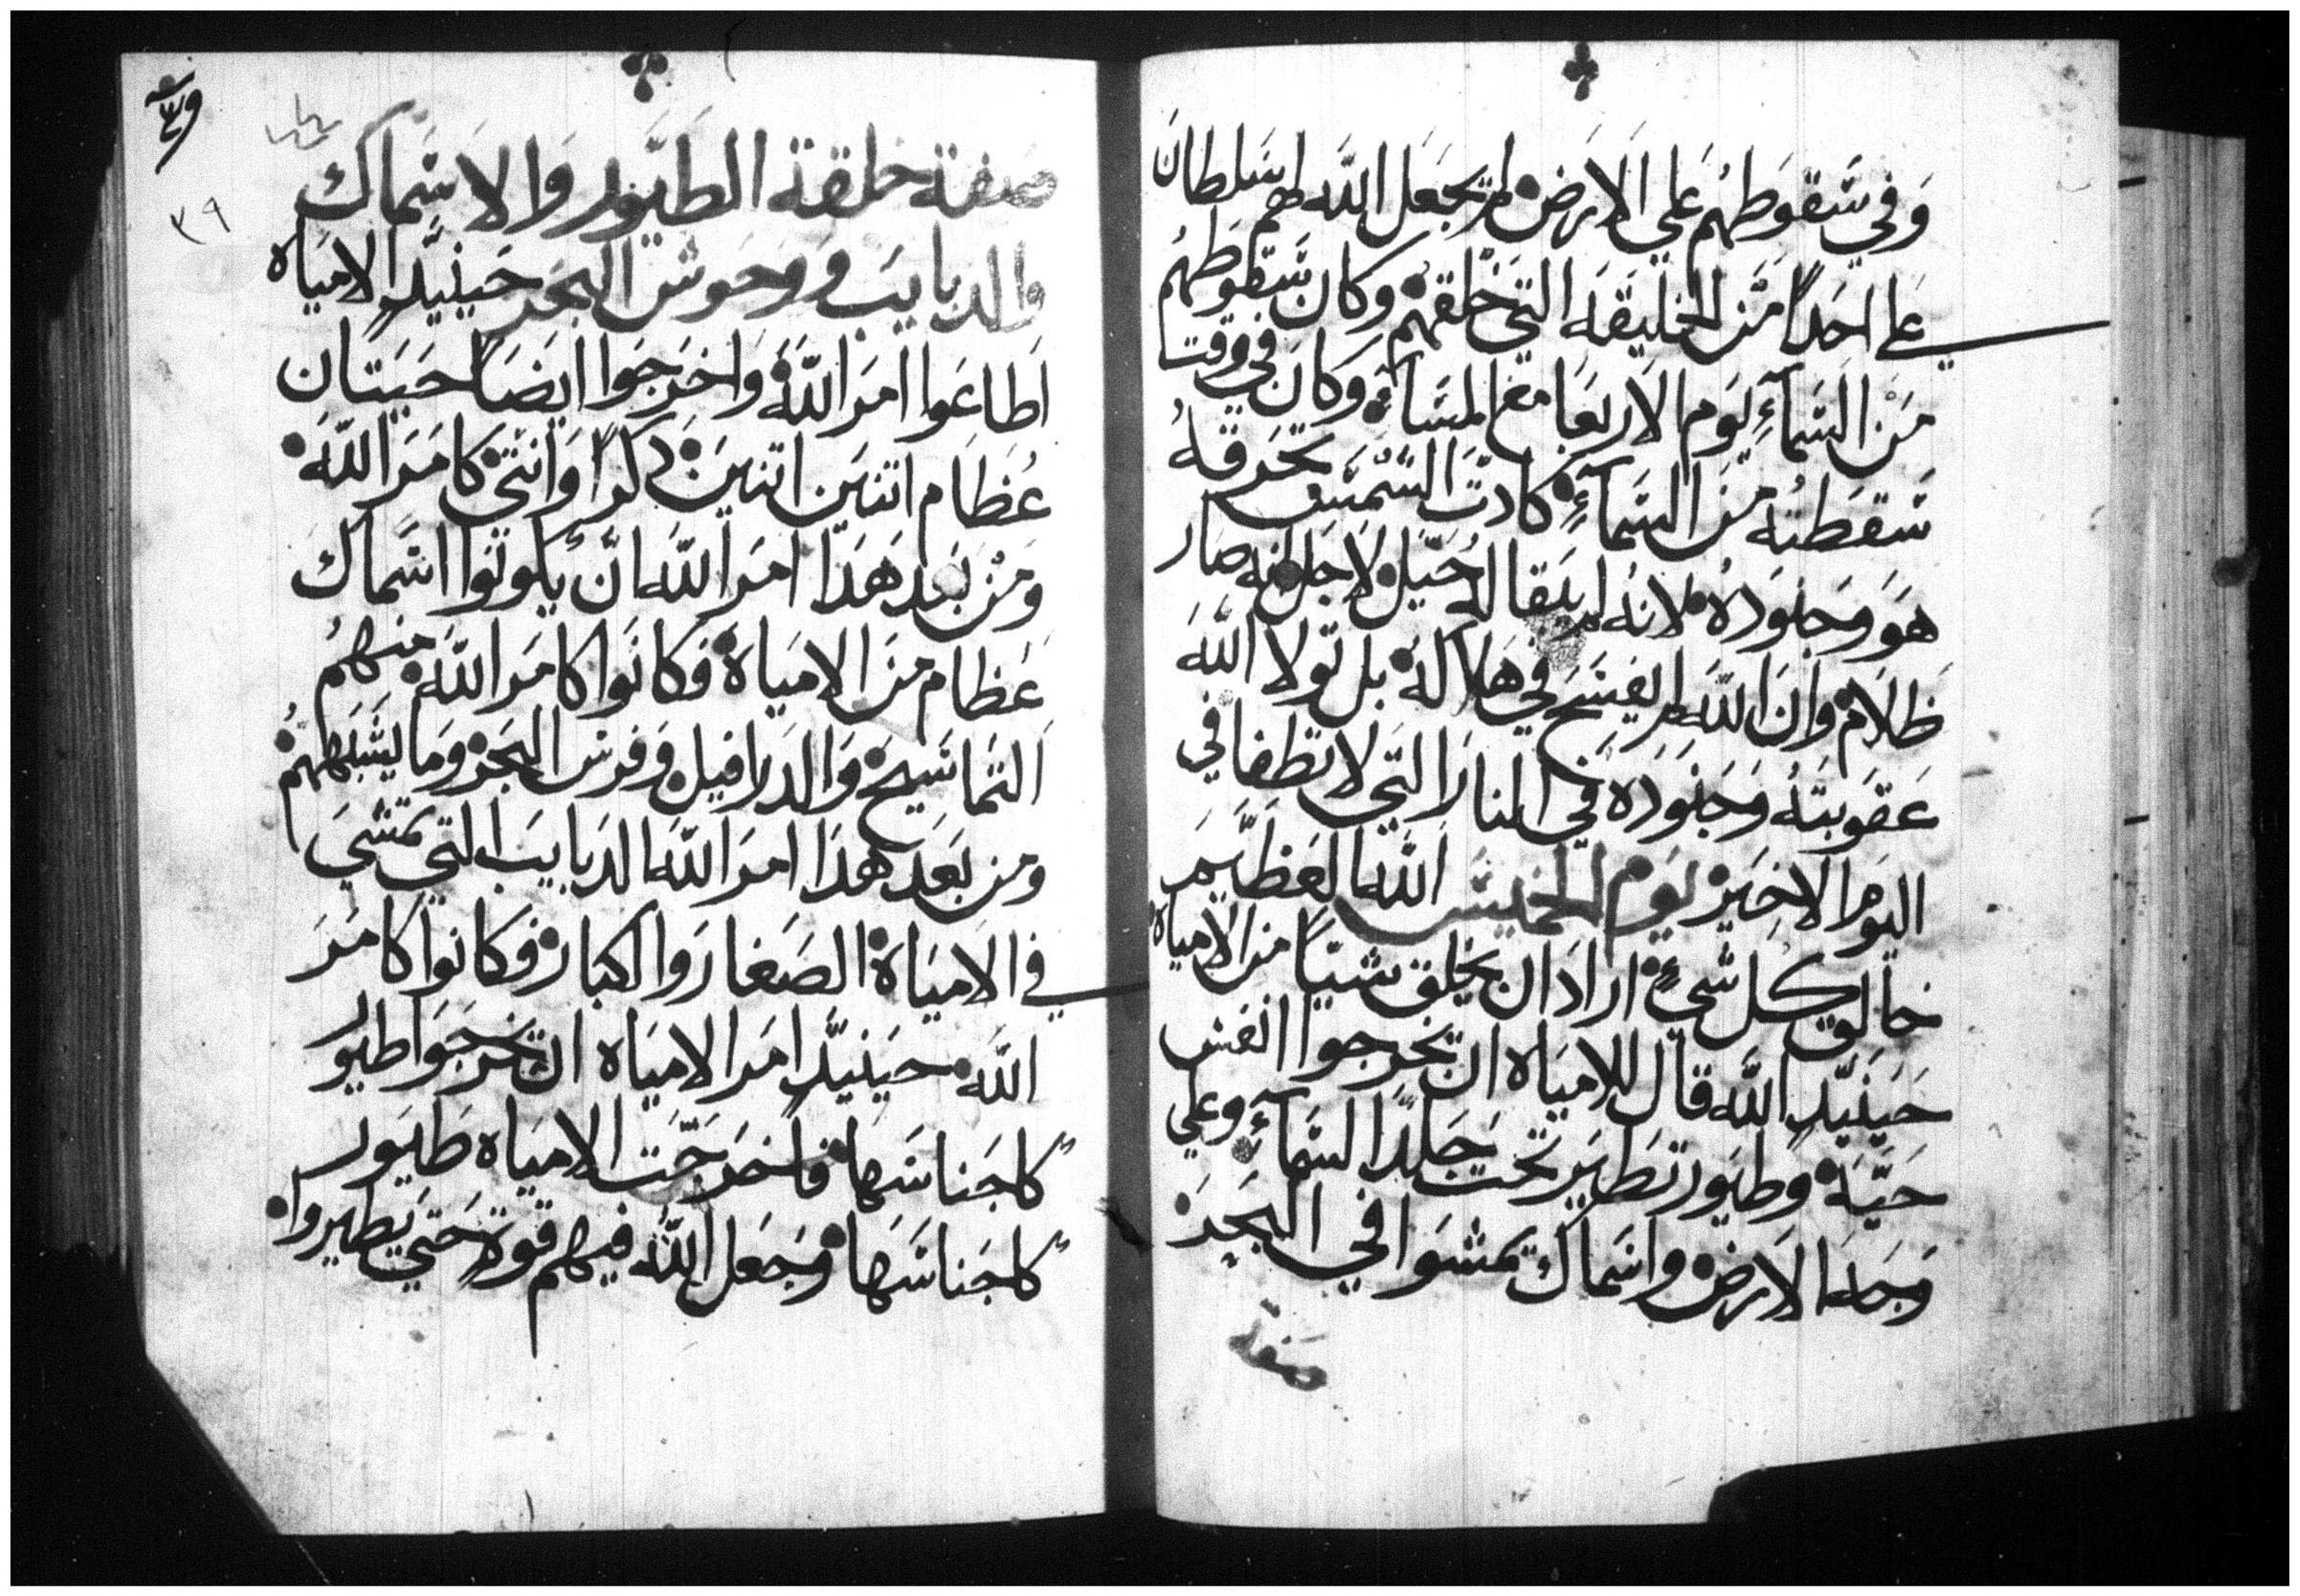 وفي سقوطهم علي الارض لم يجعل الله لهم سلطان
علي احدا من الخليقه التي خلقهم وكان سقوطهم
من السمآء يوم الاربعا مع المسا وكان في وقت
سقطته من السمآء كادت الشمس تحرقه
هو وجنوده لانه لم يقال له حيل لاجل انه صار
ظلام وان الله لم يفسح في هلاكه بل تولا الله
عقوبته وجنوده في النار التي لا تطفا في
اليوم الاخير يوم الخميس الله العظيم
خالق كل شيء اراد ان يخلق شيا من الامياه
حينيد الله قال للامياه ان تخرجوا انفس
حيه وطيور تطير تحت جلد السمآء وعلي
وجه الارض واسماك تمشوا في البحر
صفة
صفة خلقة الطيور والاسماك
والدبايب ووحوش البحر حينيد الامياه
اطاعوا امر الله واخرجوا ايضا حيتان
عظام اتنين اتنين دكرا وانتي كامر الله
ومن بعد هدا امر الله ان يكونوا اسماك
عظام من الامياه فكانوا كامر الله منهم
التماسيح والدرافيل وفرس البحر وما يشبههم
ومن بعد هدا امر الله الدبايب التي تمشي
في الامياه الصغار والكبار فكانوا كامر
الله حينيد امر الامياه ان تخرجوا طيور
كاجناسها فاخرجت الامياه طيور
كاجناسها وجعل الله فيهم قوة حتي يطيروا
٣٩